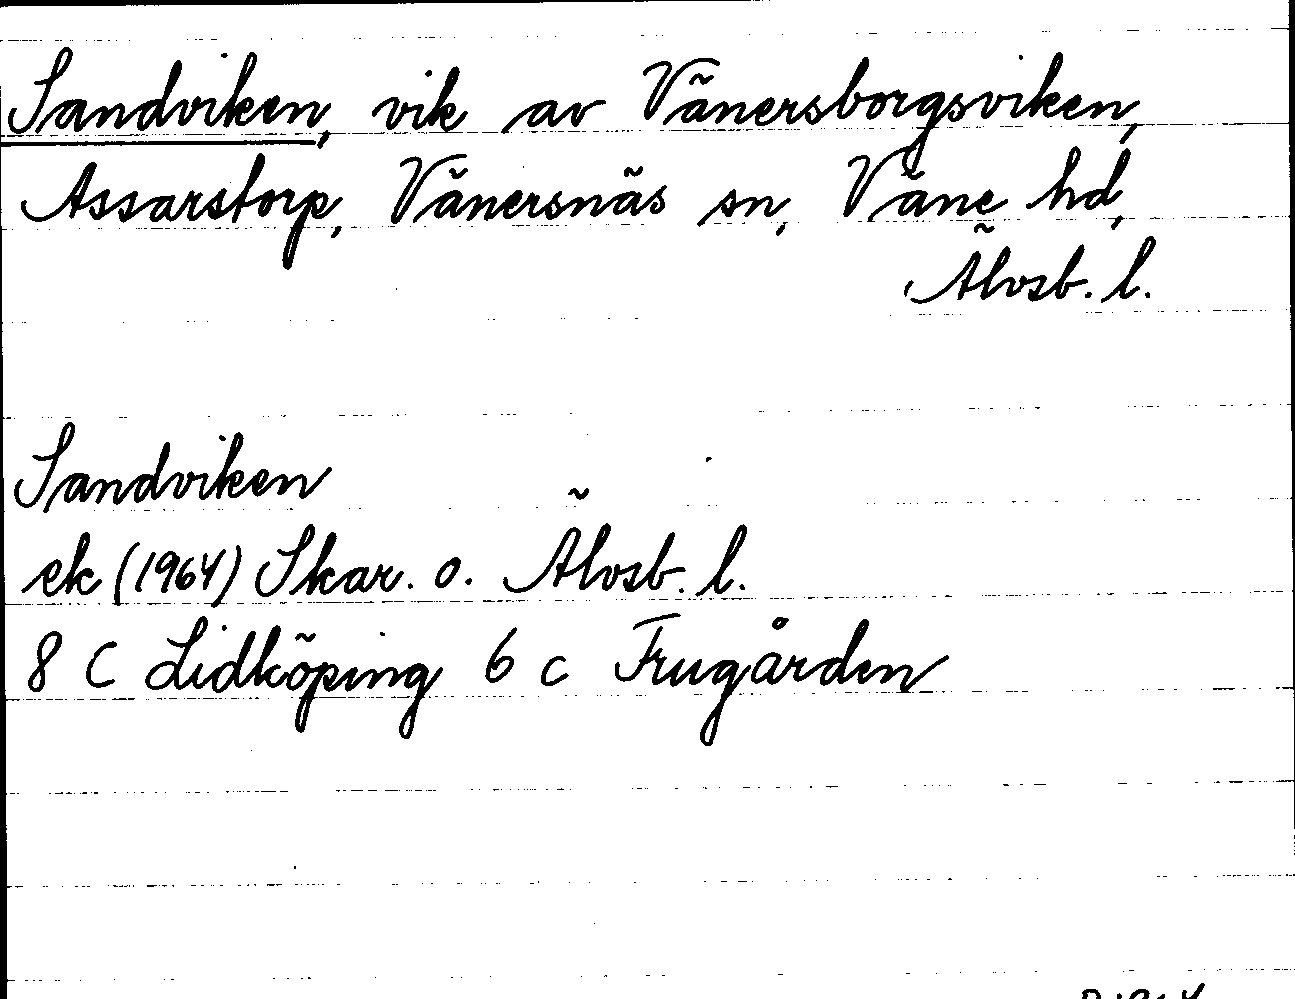 Sandviken, vik av Vänersborgsviken,
Assarstorp, Vänersnäs sn, Väne hd,
Älvsb. l.
Sandviken
ek (1964) Skar. o. Älvsb. l.
8 C Lidköping 6 c Frugården